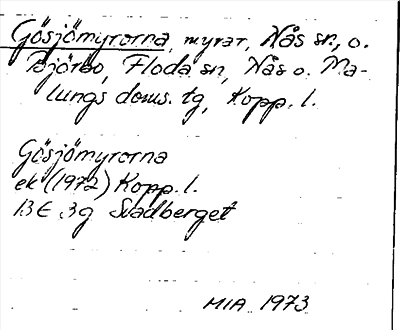 Gösjömyrorna, myrar, Nås sn, o.
Björbo, Floda sn, Nås o. Ma-
lungs doms. tg, Kopp. l.
Gösjömyrorna
ek (1972) Kopp. l.
13 E 3g Svadberget
MIA 1973